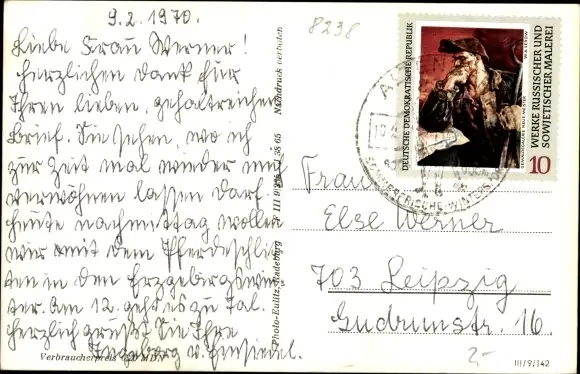 9.2.1970.
Liebe Frau Werner!
Herzlichen Dank für
Ihren lieben, gehaltreichen
Brief. Sie sehen, wo ich
zur Zeit mal wieder mich
verwöhnen lassen darf.
Heute nachmittag wollen
wir mit dem Pferdeschlit-
ten in den Erzgebirgswin-
ter. Am 12. geht es zu Tal.
Herzlich grüßt Sie Ihre
Ingeborg v. Einsiedel.
Verbraucherpreis MDN
Photo-Eulitz, Radeburg
Nachdruck verboten
8238
DEUTSCHE DEMOKRATISCHE REPUBLIK
WERKE RUSSISCHER UND
SOWJETISCHER MALEREI
10
Frau
Else Werner
703 Leipzig
Gudrunstr. 16.
2-
III/9/142